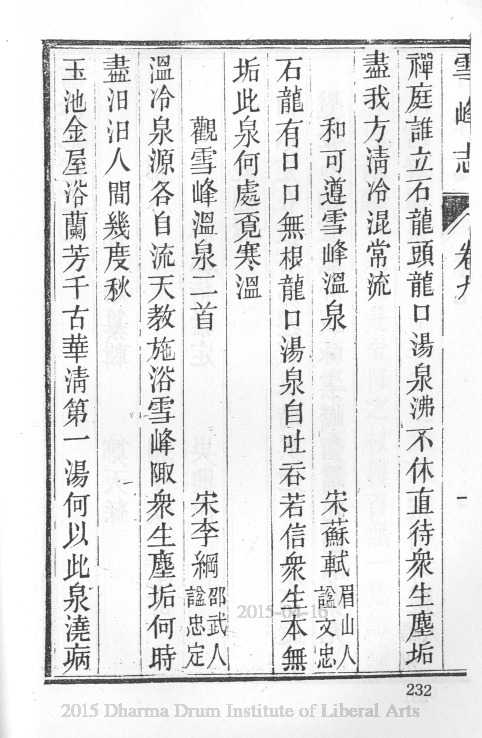 雪峰志 卷九
禪庭誰立石龍頭龍口湯泉沸不休直待衆生塵垢
盡我方清冷混常流
和可遵雪峰溫泉 宋蘇軾 眉山人 諡文忠
石龍有口口無根龍口湯泉自吐吞若信衆生本無
垢此泉何處覔寒溫
觀雪峰溫泉二首 宋李綱 邵武人 諡忠定
溫冷泉源各自流天教施浴雪峰陬衆生塵垢何時
盡汨汨人間幾度秋
玉池金屋浴蘭芳千古華清第一湯何以此泉澆病
232
2015 Dharma Drum Institute of Liberal Arts